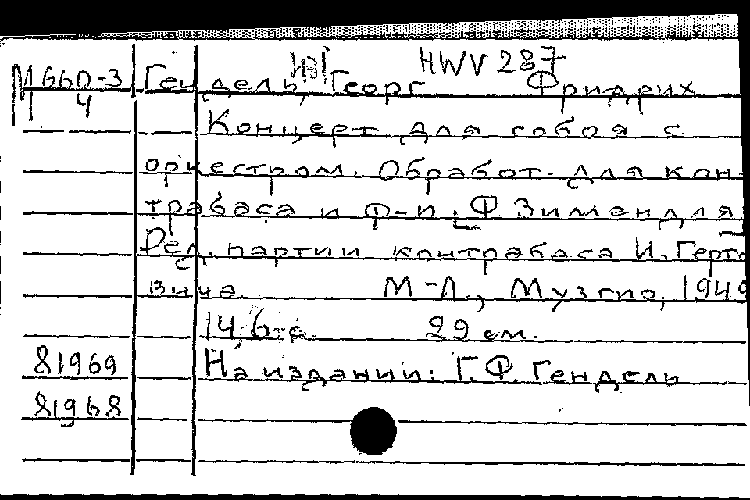 HWV 287
М 660-3 Гендель, Георг Фридрих
4
Концерт для гобоя с
оркестром. Обработ. для кон-
трабаса и ф-п. Ф Зимандля
Ред. партии контрабаса И. Герто
вича М-Л., Музгиз, 1949
14, 6 с. 29 см.
81969 На издании: Г.Ф. Гендель
81968